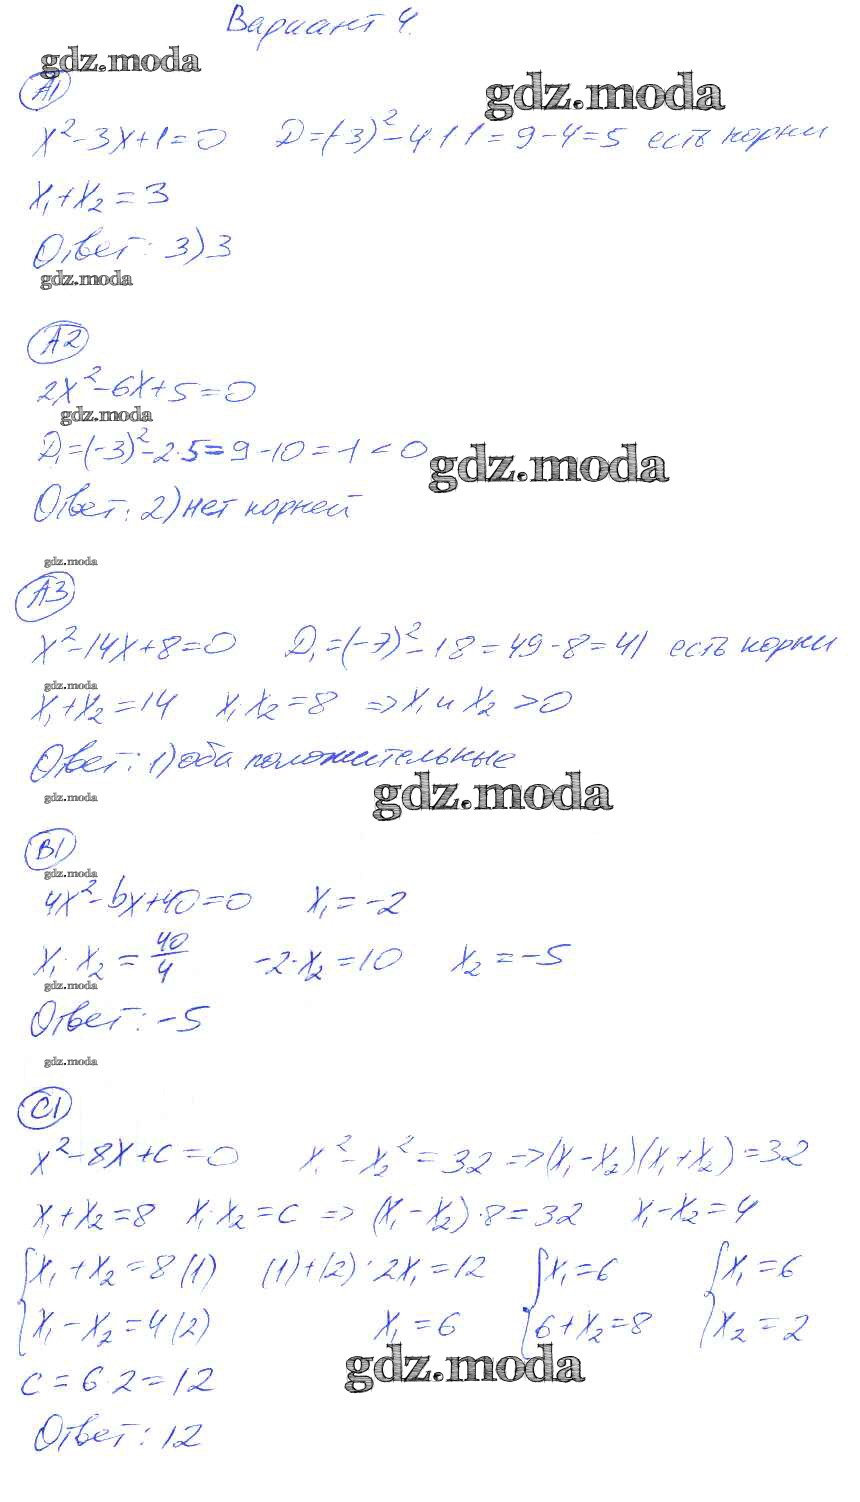 Вариант 4.
gdz.moda
А1
gdz.moda
x²-3x+1=0 D=(-3)²-4·1·1=9-4=5 есть корни
x₁+x₂=3
Ответ: 3)3
gdz.moda
А2
2x²-6x+5=0
gdz.moda
D₁=(-3)²-2·5=9-10=-1<0
gdz.moda
Ответ: 2)нет корней
gdz.moda
А3
x²-14x+8=0 D₁=(-7)²-1·8=49-8=41 есть корни
gdz.moda
x₁+x₂=14 x₁·x₂=8 =>x₁ и x₂>0
Ответ: 1)оба положительные
gdz.moda
gdz.moda
В1
gdz.moda
4x²-bx+40=0 x₁=-2
x₁·x₂=40/4 -2·x₂=10 x₂=-5
gdz.moda
Ответ: -5
gdz.moda
С1
x²-8x+c=0 x₁²-x₂²=32=>(x₁-x₂)(x₁+x₂)=32
x₁+x₂=8 x₁·x₂=c => (x₁-x₂)·8=32 x₁-x₂=4
{x₁+x₂=8 (1) (1)+(2): 2x₁=12 {x₁=6 {x₁=6
x₁-x₂=4 (2) x₁=6 6+x₂=8 x₂=2
gdz.moda
c=6·2=12
Ответ: 12